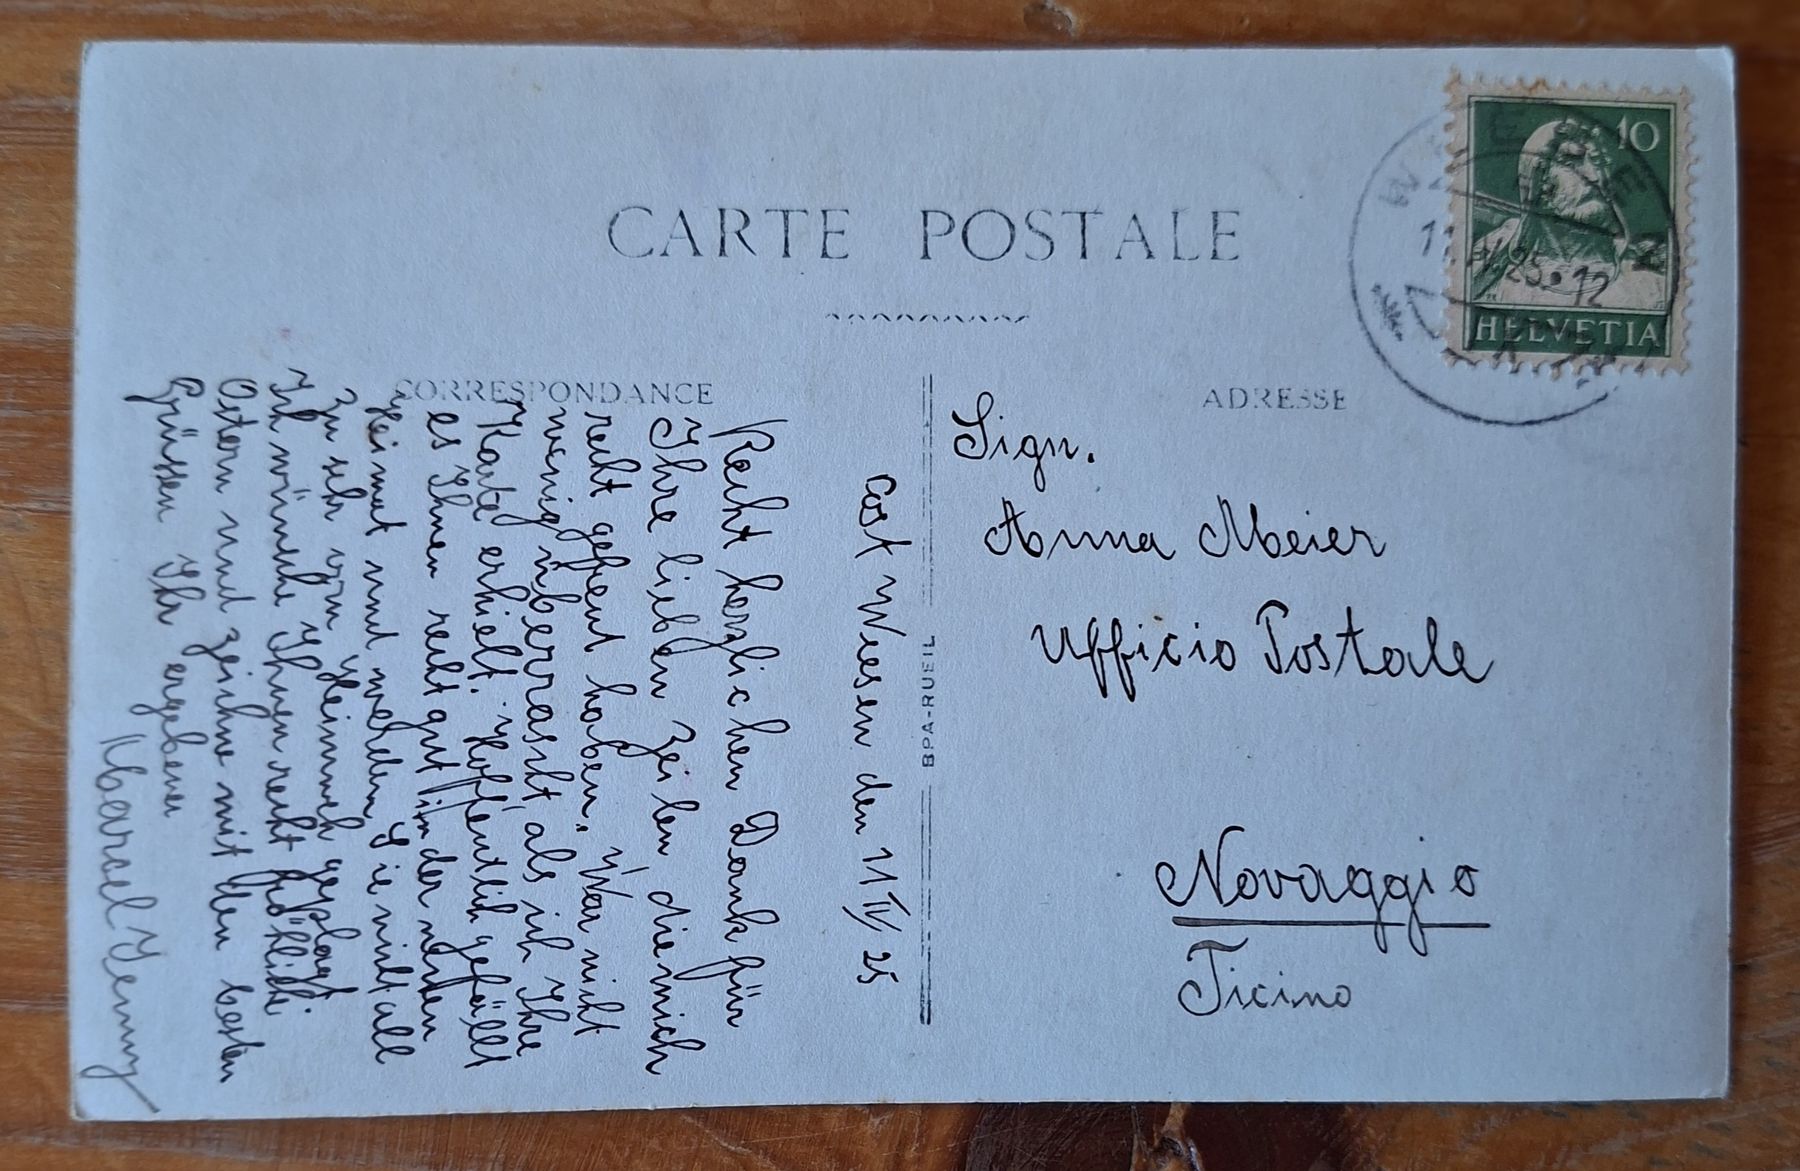 CARTE POSTALE
CORRESPONDANCE
ADRESSE
10
HELVETIA
11.IV.25.12
BPA-RUEIL
Sign.
Anna Meier
Ufficio Postale
Novaggio
Ticino
Wiesen den 11 IV 25
Recht herzlichen Dank für
Ihre lieben Zeilen die mich
recht gefreut haben. War nicht
wenig überrascht als ich Ihre
Karte erhielt. Hoffentlich gefällt
es Ihnen recht gut in der neuen
Heimat und werden Sie nicht all
zu sehr vom Heimweh geplagt
Ich wünsche Ihnen recht fröhliche
Ostern und zeichne mit den besten
Grüssen Ihr ergebener
Marcel Jenny